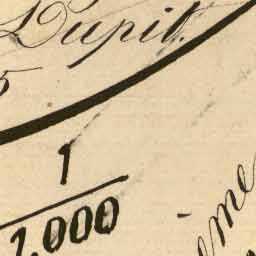 Dupit.
5
1
1,000
eme